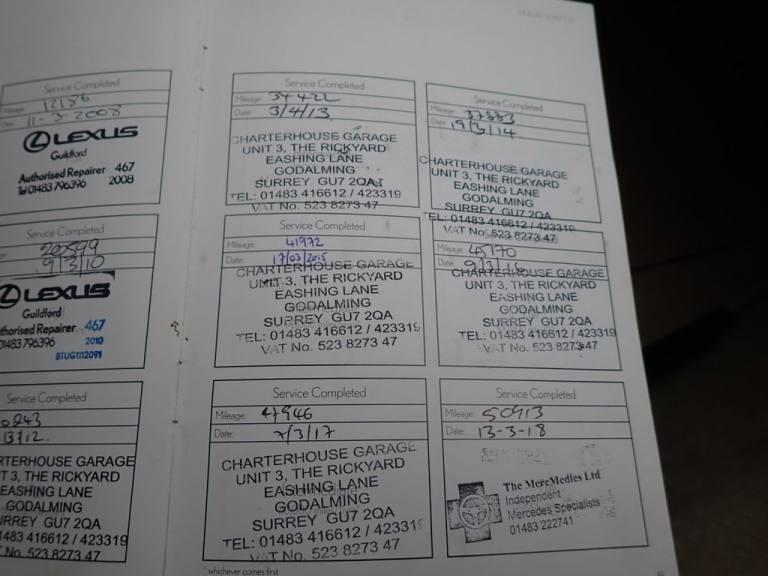 Service Completed
Mileage: 12186
11-3-2008
LEXUS
Guildford
Authorised Repairer 467
Tel 01483 796396 2008
Service Completed
20599
9/3/10
LEXUS
Guildford
thorised Repairer 467
01483 796396 2010
BTUG1112091
Service Completed
0243
13/12
RTERHOUSE GARAGE
T 3, THE RICKYARD
EASHING LANE
GODALMING
RREY GU7 2QA
1483 416612 / 423319
No. 523 8273 47
Service Completed
Mileage: 34422
Date: 3/4/13
CHARTERHOUSE GARAGE
UNIT 3, THE RICKYARD
EASHING LANE
GODALMING
SURREY GU7 2QA
TEL: 01483 416612 / 423319
VAT No. 523 8273 47
Service Completed
Mileage: 37883
Date: 19/3/14
CHARTERHOUSE GARAGE
UNIT 3, THE RICKYARD
EASHING LANE
GODALMING
SURREY GU7 2QA
TEL: 01483 416612 / 423319
VAT No. 523 8273 47
Service Completed
Mileage: 41972
Date: 17/03/2015
CHARTERHOUSE GARAGE
UNIT 3, THE RICKYARD
EASHING LANE
GODALMING
SURREY GU7 2QA
TEL: 01483 416612 / 423319
VAT No. 523 8273 47
Mileage: 45170
Date: 9/3/16
CHARTERHOUSE GARAGE
UNIT 3, THE RICKYARD
EASHING LANE
GODALMING
SURREY GU7 2QA
TEL: 01483 416612 / 423319
VAT No. 523 8273 47
Service Completed
Mileage: 47946
Date: 7/3/17
CHARTERHOUSE GARAGE
UNIT 3, THE RICKYARD
EASHING LANE
GODALMING
SURREY GU7 2QA
TEL: 01483 416612 / 42331
VAT No. 523 8273 47
Service Completed
Mileage: 50913
Date: 13-3-18
The MereMedies Ltd
Independent
Mercedes Specialists
01483 222741
* whichever comes first